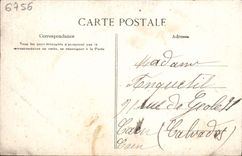 6756
CARTE POSTALE
Correspondance
Adresse
Tous les pays étrangers n'acceptent pas la
correspondance au verso, se renseigner à la Poste
Madame
rue de
Caen (Calvados)
Caen